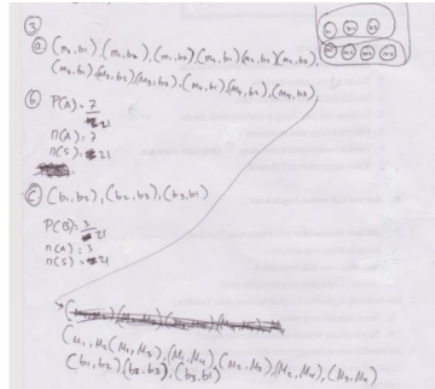 ③
ⓐ (m₁,b₁), (m₁,b₂), (m₁,b₃), (m₂,b₁) (m₂,b₂) (m₂,b₃),
(m₃,b₁) (m₃,b₂), (m₃,b₃), (m₄,b₁) (m₄,b₂), (m₄,b₃),
ⓑ P(A) = 7/21
n(A) : 7
n(S) : 21
ⓒ (b₁,b₂), (b₂,b₃), (b₃,b₁)
P(B) : 3/21
n(A) : 3
n(S) : 21
(M₁,M₂ (M₁,M₃), (M₁,M₄), (M₂,M₃), (M₂,M₄), (M₃,M₄)
(b₁,b₂), (b₂,b₃), (b₃,b₁)